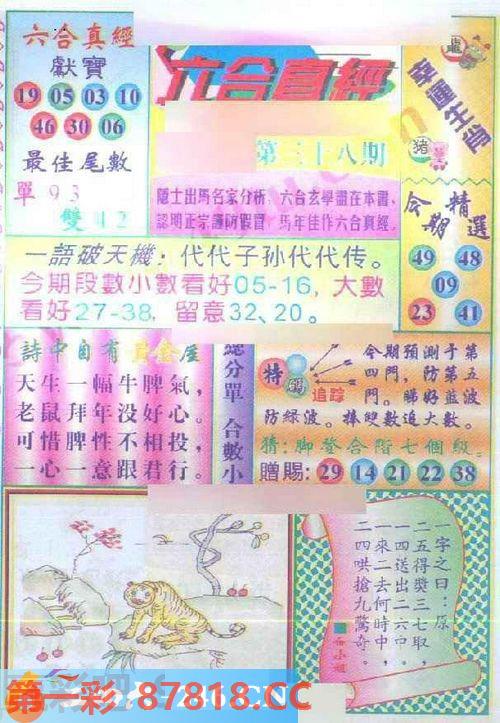 六合真經
獻寶
19 05 03 10
46 30 06
最佳尾數
單 9 3
雙 4 2
六合真經
第三十八期
隱士出馬名家分析，六合玄學盡在本書、
認明正宗謹防假冒，馬年佳作六合真經。
龍
幸運生肖
猪
今期精選
49 48
09
23 41
一語破天機：代代子孙代代传。
今期段數小數看好05-16，大數
看好27-38，留意32、20。
詩中自有黃金屋
天生一幅牛脾氣，
老鼠拜年没好心。
可惜脾性不相投，
一心一意跟君行。
總分單 合數小
特碼
追踪
今期預測于第
四門，防第五
門。睇好蓝波
防緑波。捧雙數追大數。
猜：脚登合階七個級。
贈賜：29 14 21 22 38
一字之曰：原
二五得獎三七取，
一四送出二六口，
一來二去何時中，
二四哄搶九驚奇。
第一彩 87818.CC
246.CN